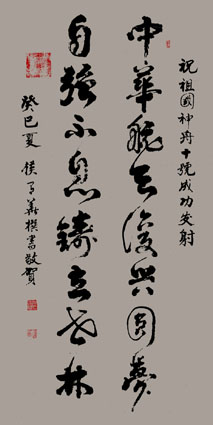 祝祖國神舟十號成功发射
中華航天復興圓夢
自强不息鑄立世林
癸巳夏 侯了義撰書敬賀